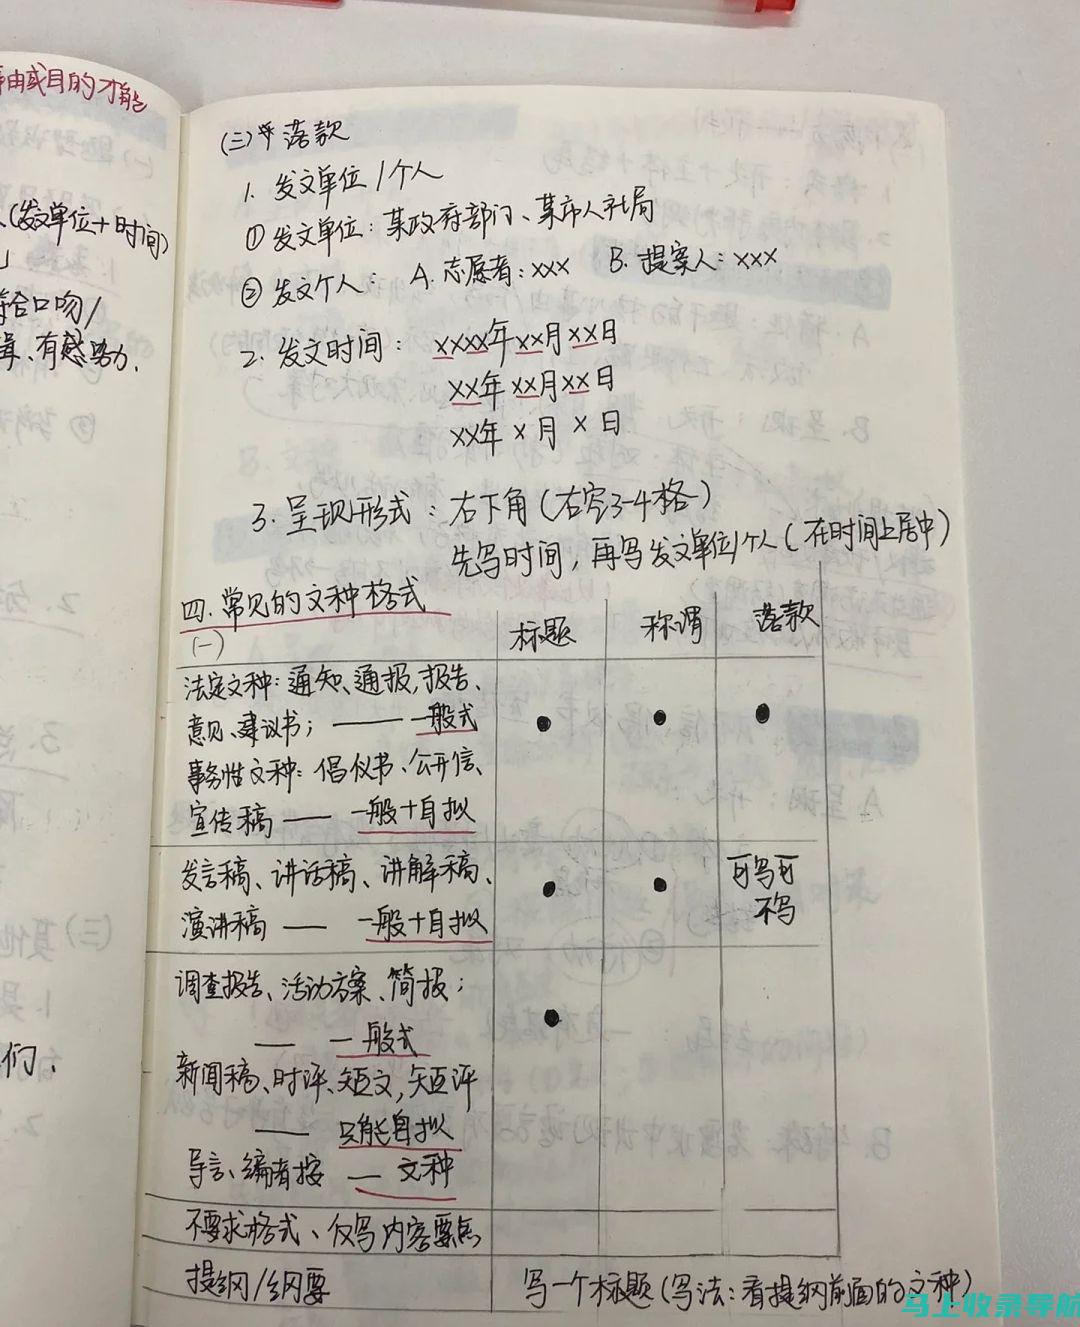 事由或目的才能
(发文单位+时间)
符合口吻/
有感染力.
们.
(三)落款
1. 发文单位/个人
① 发文单位: 某政府部门、某市人社局
② 发文个人: A. 志愿者: xxx B. 提案人: xxx
2. 发文时间: xxxx年xx月xx日
xx年xx月xx日
xx年x月x日
3. 呈现形式: 右下角(右空3-4格)
先写时间, 再写发文单位/个人(在时间上居中)
四. 常见的文种格式
(一) 标题 称谓 落款
法定文种: 通知、通报, 报告、
意见、建议书; —— 一般式 ● ● ●
事务性文种: 倡仪书、公开信、
宣传稿 —— 一般+自拟
发言稿、讲话稿、讲解稿、 ● ● 可写可
演讲稿 —— 一般+自拟 不写
调查报告、活动方案、简报; ●
—— 一般式
新闻稿、时评、短文, 短评
—— 只能自拟
导言、编者按 — 文种
不要求格式、仅写内容要点
提纲/纲要 写一个标题(写法: 看提纲前面的文种)
马上收录导航